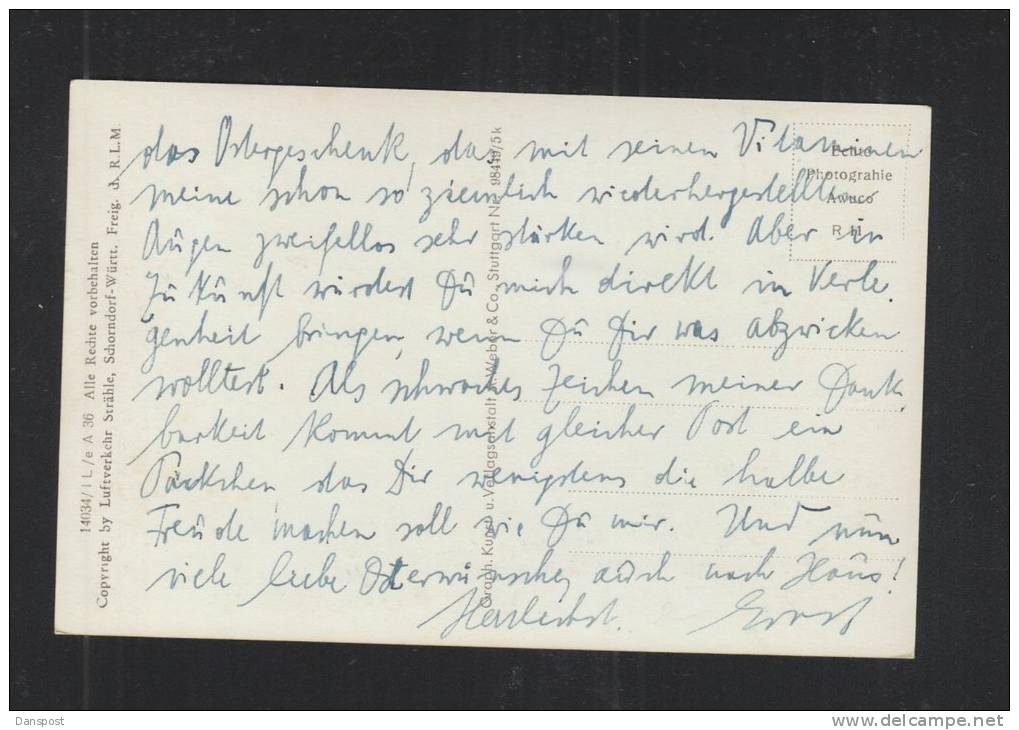 das Ostergeschenk, das mit seinen Vitaminen
meine schon so ziemlich wiederhergestellten
Augen zweifellos sehr stärken wird. Aber in
Zukunft würdest Du mich direkt in Verle-
genheit bringen, wenn Du Dir was abzwicken
wolltest. Als schwaches Zeichen meiner Dank
barkeit kommt mit gleicher Post ein
Päckchen das Dir wenigstens die halbe
Freude machen soll wie Du mir. Und nun
viele liebe Osterwünsche, auch nach Haus!
Herzlichst. Ernst
14034/1 L/e A 36 Alle Rechte vorbehalten
Copyright by Luftverkehr Strähle, Schorndorf-Württ. Freig. d. R.L.M.
Graph. Kunst- u. Verlagsanstalt A. Weber & Co., Stuttgart Nr. 98449/5k
Echte
Photograhie
Awuco
R 11
Danspost
www.delcampe.net